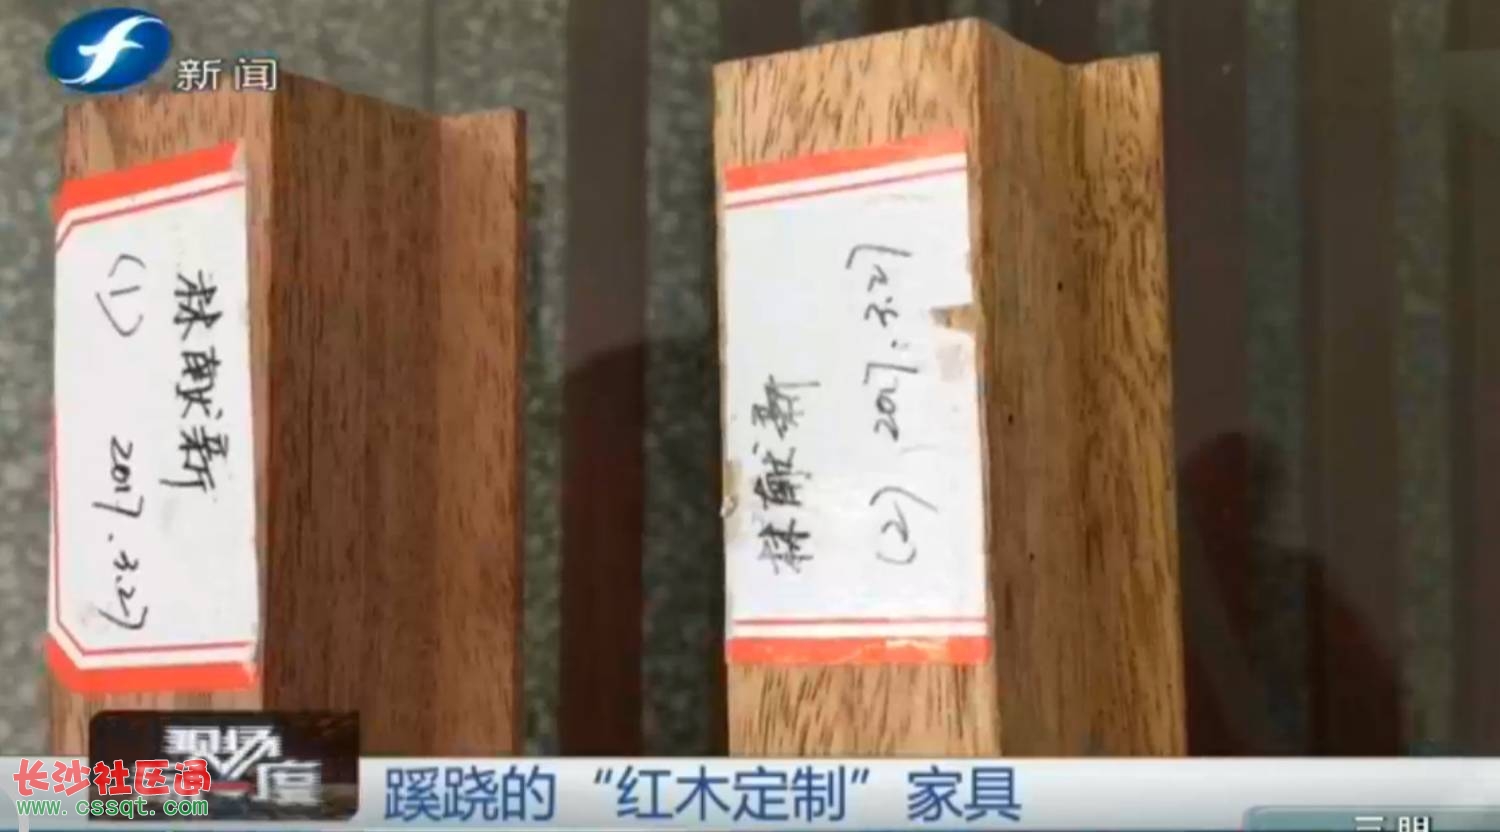 新闻
林献新
(1) 2017.3.27
林献新
(2) 2017.3.27
现场
度
长沙社区通
www.cssqt.com
蹊跷的“红木定制”家具
三明